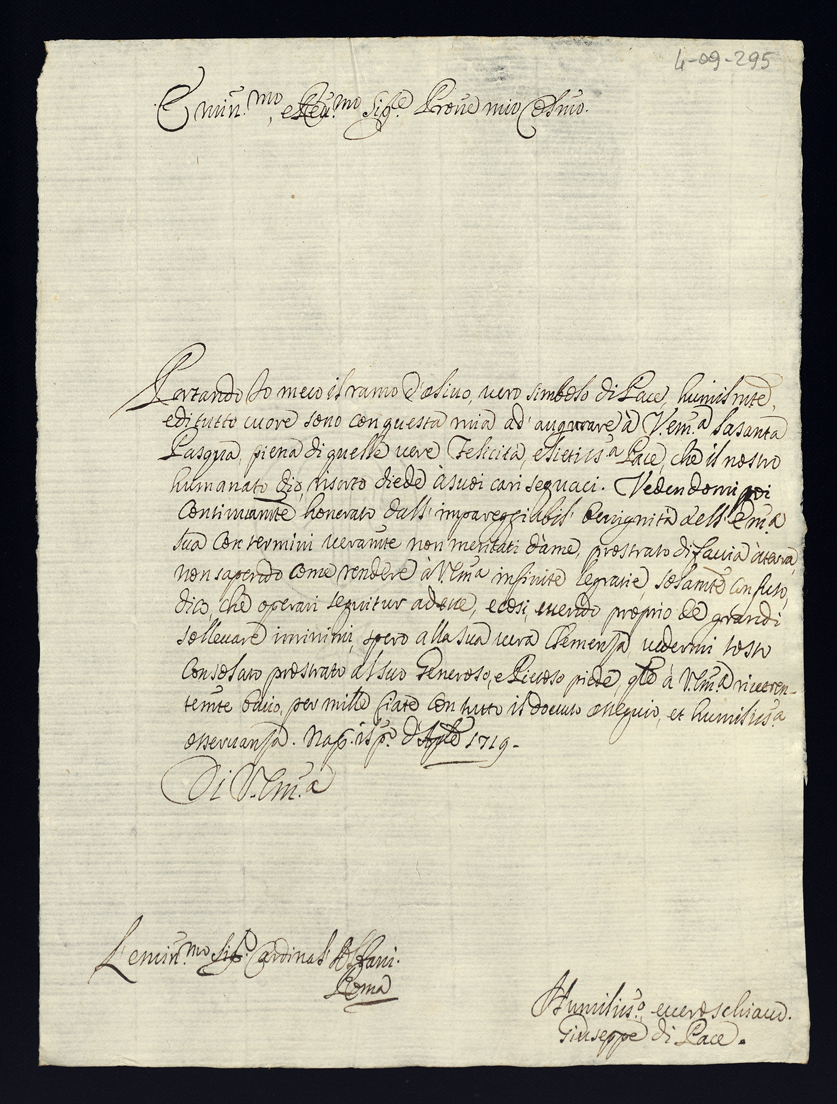 4-09-295
Emin.mo, e Reu.mo Sig.re Prone mio Colmo.
Portando Io meco il ramo d'oliuo, uero simbolo di Pace, humilmte,
e di tutto cuore sono con questa mia ad' augurare à V. Em.a la santa
Pasqua, piena di quelle uere Felicità, e lietiss.a Pace, che il nostro
humanato dio, risorto diede à suoi cari seguaci. Vedendomi poi
Continuamte honerato dall' impareggiabil' benignità dell' Em.a
sua con termini ueramte non meritati dàme, prostrato di faccia à terra,
non sapendo come rendere à V. Em.a infinite le gratie solamte confuso,
dico, che operari sequitur ad esse, e così, essendo proprio de grandi
solleuare i minimi, spero alla sua uera Clemenza uedermi tosto
Consolato prostrato al suo Generoso, e Pietoso piede qle à V. Em.a riueren-
temte bacio, per mille fiate con tutto il douuto ossequio, et humiliss.a
osseruanza. Nap. il p.o d'Aple 1719.
Di V. Em.a
L'emin.mo Sig.r Cardinal'
Roma
Humiliss.o e uero schiauo.
Giuseppe di Pace.